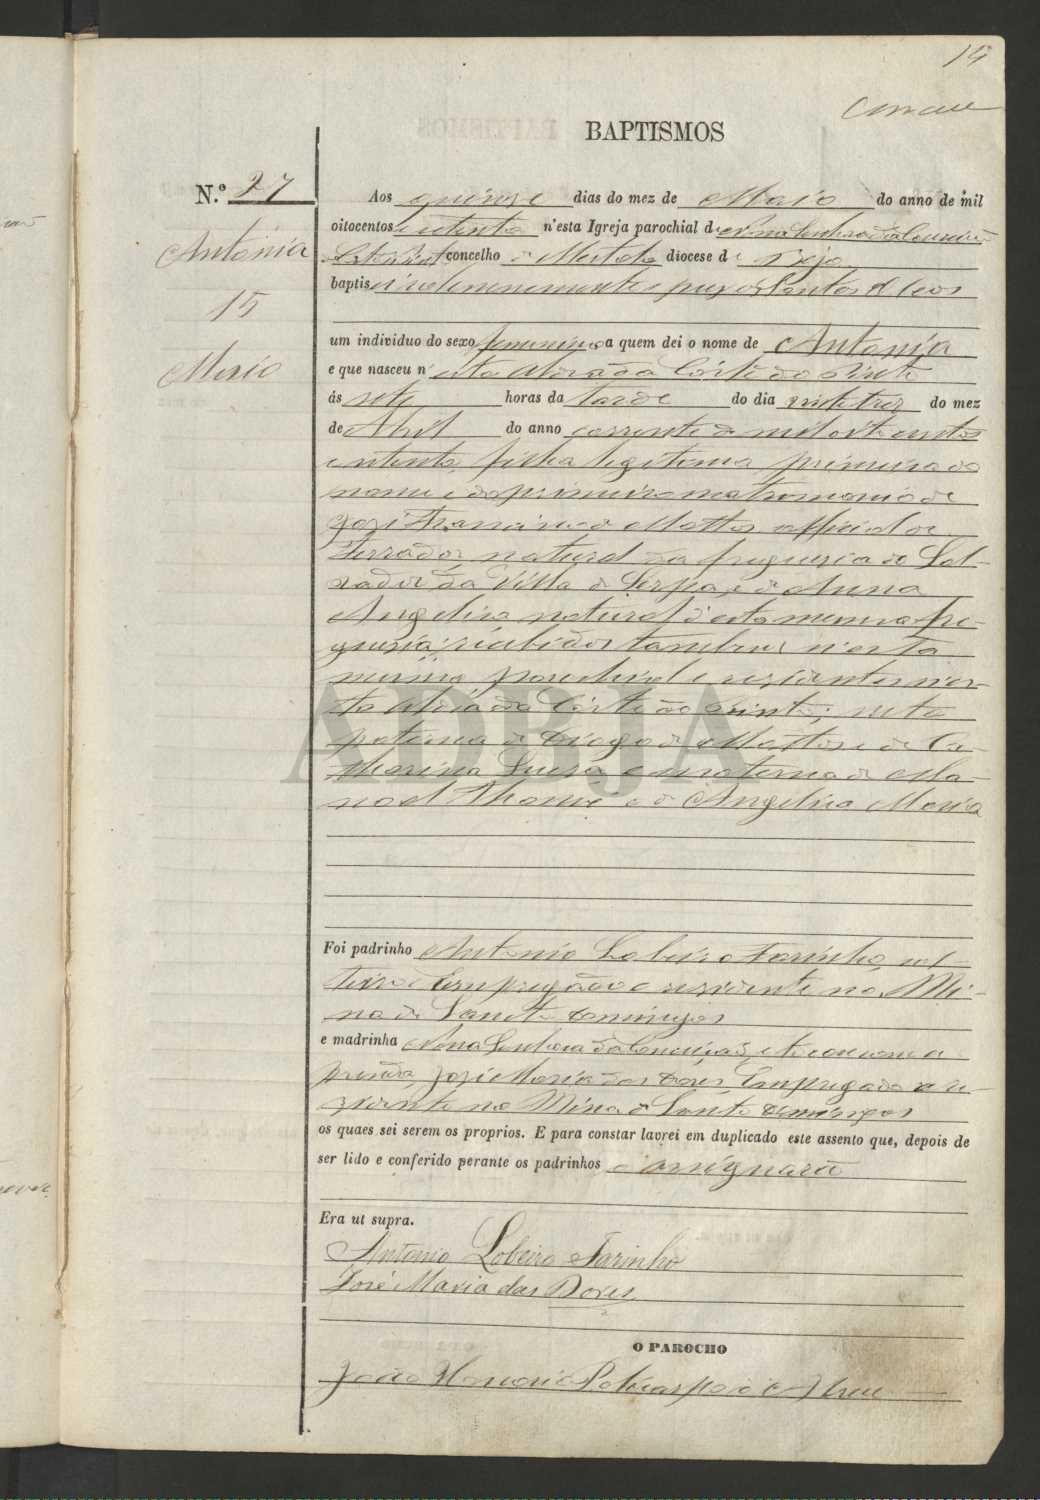 BAPTISMOS
N.º 27
Antonia
15
Maio
Aos quinze dias do mez de Maio do anno de mil
oitocentos e oitenta n'esta Igreja parochial de Nossa Senhora da Conceição
concelho de Mertola diocese de Beja
baptisei solemnemente e puz os Santos Oleos
um individuo do sexo femenino a quem dei o nome de Antonia
e que nasceu n'esta Aldeia da Côrte do Pinto
ás sete horas da tarde do dia vinte tres do mez
de Abril do anno corrente de mil oito centos
e oitenta, filha legitima primeira do
nome e do primeiro matrimonio de
José Francisco de Mattos official de
Ferrador natural da freguezia do Sal-
vador da Villa de Serpa, e de Anna
Angelica natural d'esta mesma fre-
guezia recebidos tambem n'esta
mesma parochial e residentes n'es-
ta Aldeia da Côrte do Pinto; neta
paterna de Diogo de Mattos e de Ca-
tharina Luiza, e materna de Ma-
noel Thomé e de Angelica Maria
ADBJA
Foi padrinho Antonio Lobeiro Farinho, sol-
teiro Empregado e residente na Mi-
na de Sancto Domingos
e madrinha Nossa Senhora da Conceição, tocou com a
prenda José Maria das Dores, Empregado e re-
zidente na Mina de Santo Domingos
os quaes sei serem os proprios. E para constar lavrei em duplicado este assento que, depois de
ser lido e conferido perante os padrinhos assignarão
Era ut supra.
Antonio Lobeiro Farinho
José Maria das Dores
O PAROCHO
João Honorio Policarpo d'Abreu